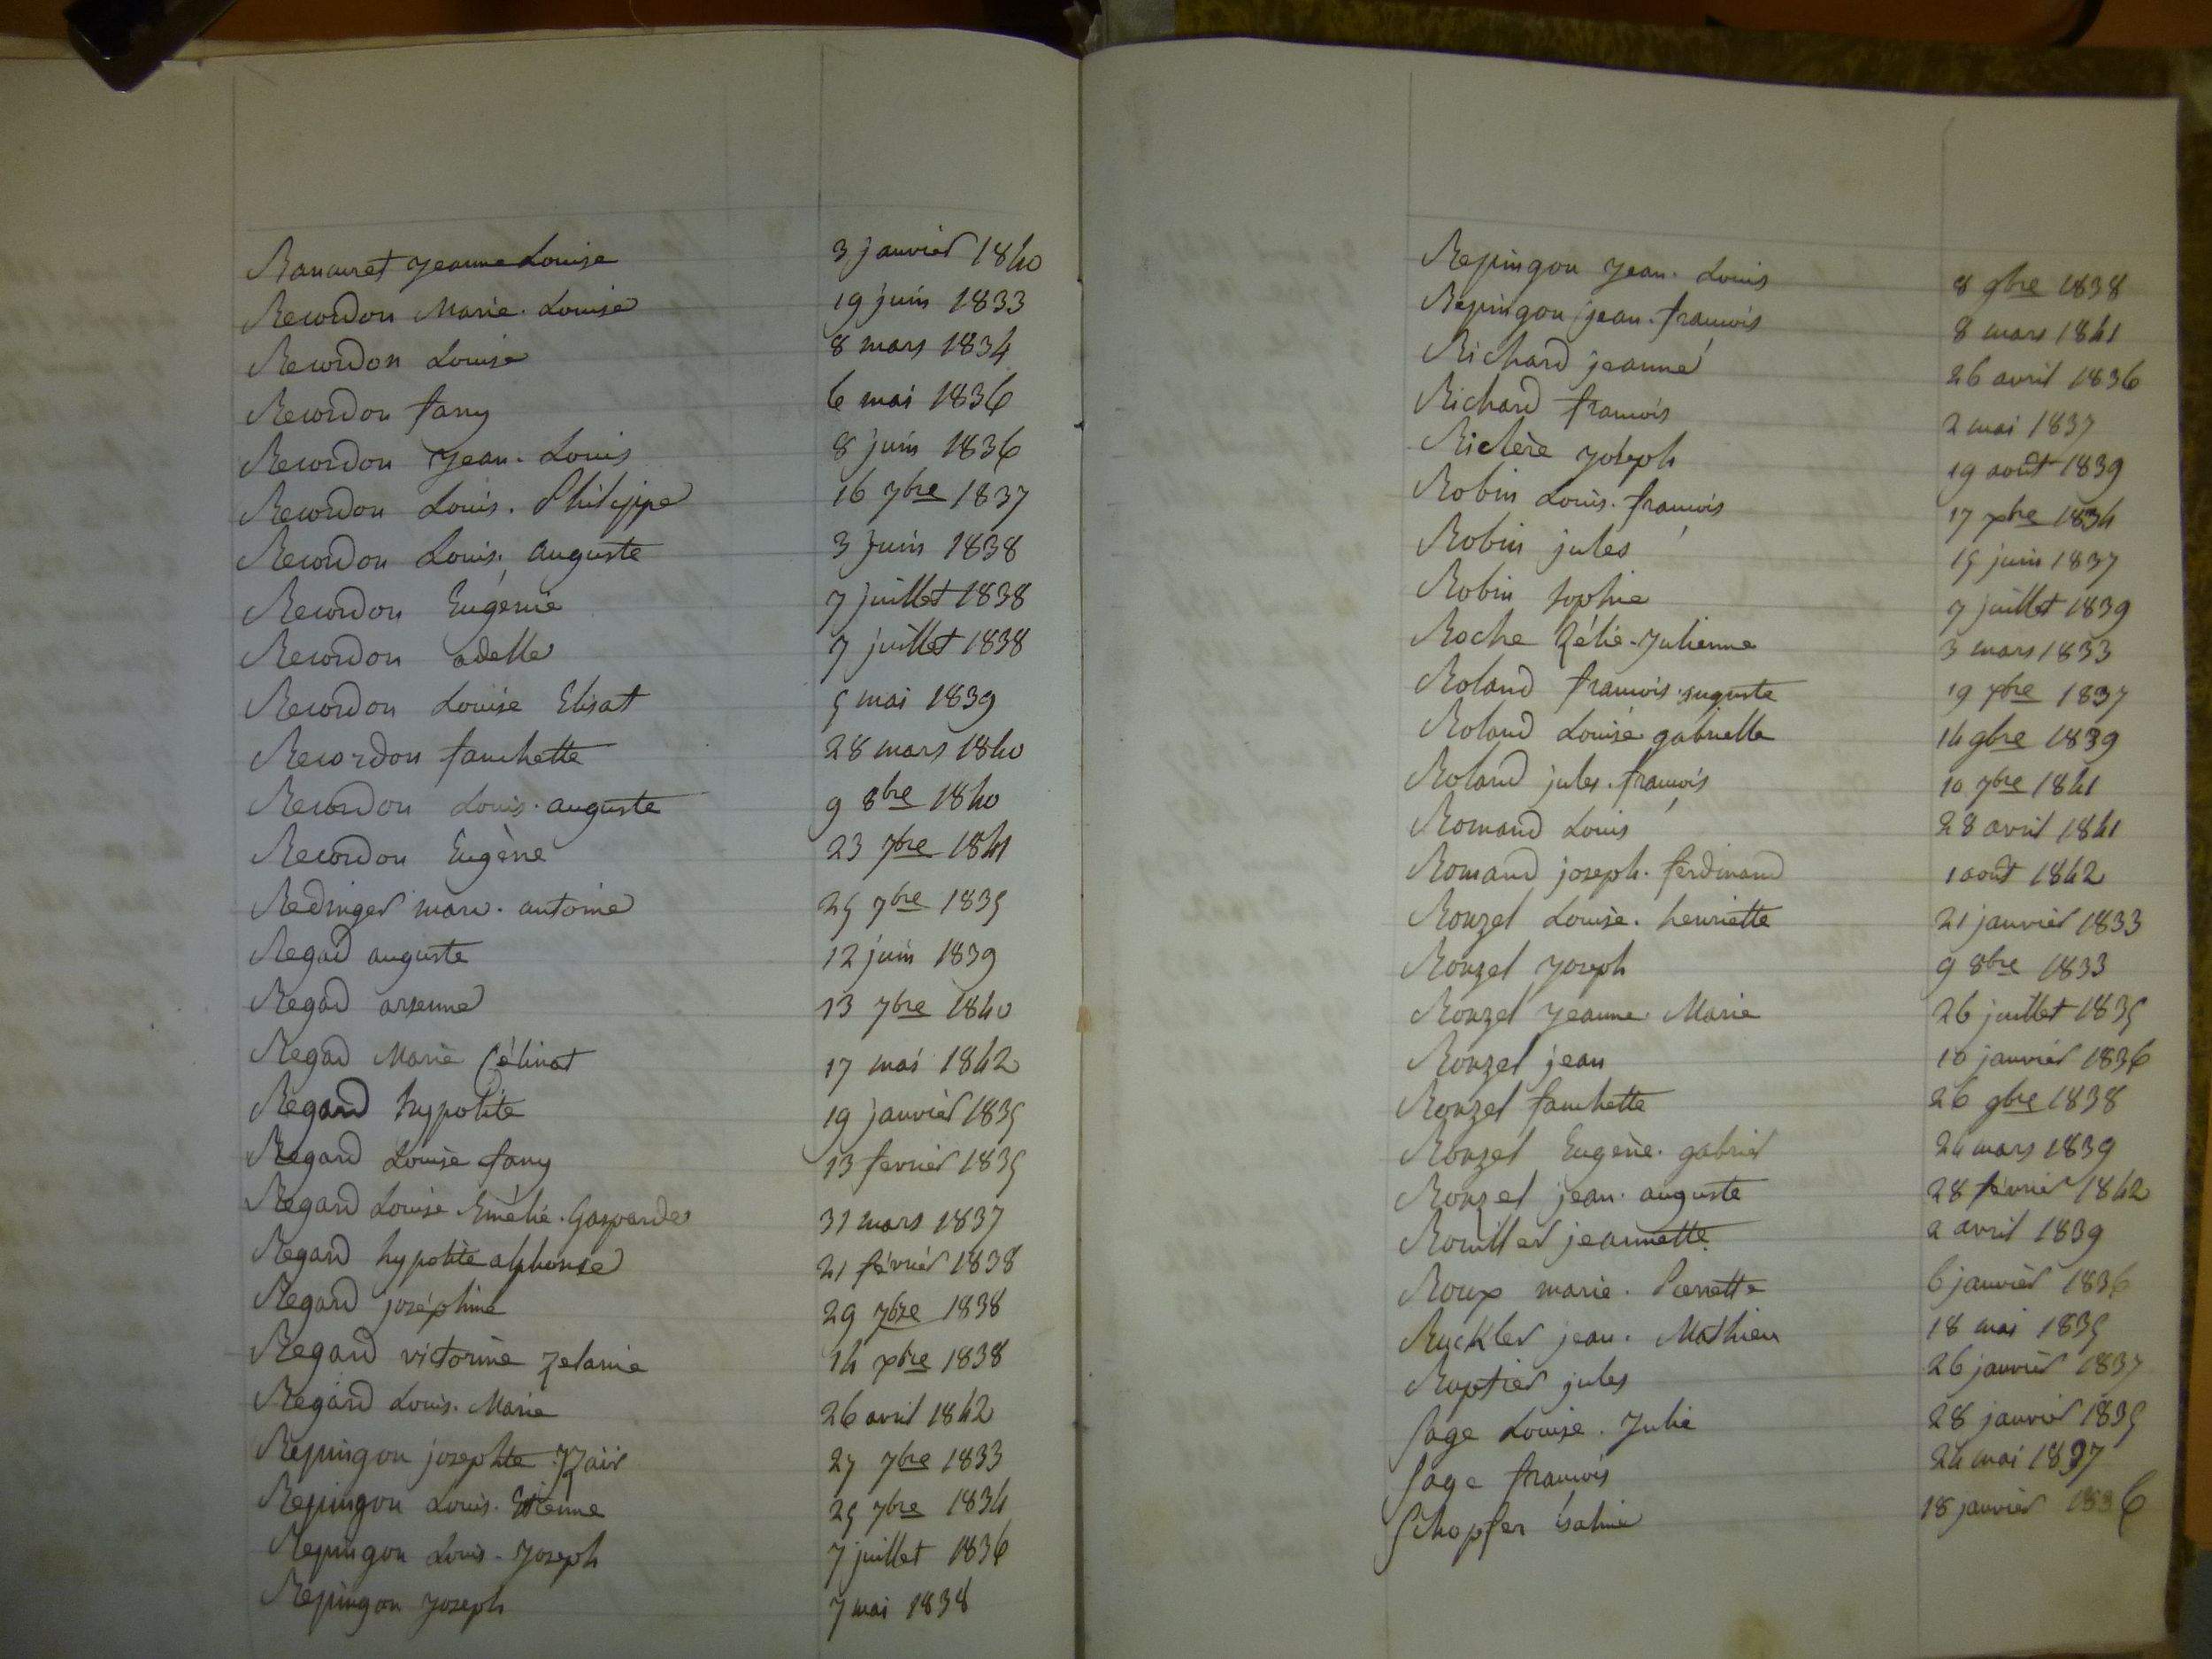 Ranauret Jeanne Louise 3 janvier 1840
Recordon Marie. Louise 19 juin 1833
Recordon Louise 8 mars 1834
Recordon fany 6 mai 1836
Recordon Jean. Louis 8 juin 1836
Recordon Louis. Philippe 16 7bre 1837
Recordon Louis. auguste 3 juin 1838
Recordon Eugénie 7 juillet 1838
Recordon adelle 7 juillet 1838
Recordon Louise Elisat 5 mai 1839
Recordon fanchette 28 mars 1840
Recordon Louis. auguste 9 8bre 1840
Recordon Eugène 23 7bre 1841
Redinger marc. antoine 25 7bre 1835
Regad auguste 12 juin 1839
Regad arsenne 13 7bre 1840
Regad Marie Célinat 17 mai 1842
Regard hypolite 19 janvier 1835
Regard Louise fany 13 fevrier 1835
Regard Louise Emélie. Gasparde 31 mars 1837
Regard hypolite alphonse 21 février 1838
Regard joséphine 29 7bre 1838
Regard victorine Zelanie 14 xbre 1838
Regard Louis. Marie 26 avril 1842
Repingon josephte 27 7bre 1833
Repingon Louis. Etienne 25 7bre 1834
Repingon Louis. Joseph 7 juillet 1836
Repingon Joseph 7 mai 1838
Repingon Jean. Louis 8 9bre 1838
Repingon jean. francois 8 mars 1841
Richard jeanne 26 avril 1836
Richard francois 2 mai 1837
Riclère Joseph 19 août 1839
Robin Louis. francois 17 xbre 1834
Robin jules 15 juin 1837
Robin sophie 7 juillet 1839
Roche Zélie. Julienne 3 mars 1833
Roland francois. auguste 19 7bre 1837
Roland Louise gabrielle 14 9bre 1839
Roland jules. francois 10 7bre 1841
Romand Louis 28 avril 1841
Romand joseph. ferdinand 1 août 1842
Rouzel Louise. henriette 21 janvier 1833
Rouzel Joseph 9 8bre 1833
Rouzel Jeanne. Marie 26 juillet 1835
Rouzel jean 10 janvier 1836
Rouzel fanchette 26 9bre 1838
Rouzel Eugène. gabriel 24 mars 1839
Rouzel jean. auguste 28 février 1842
Rouiller jeannette 2 avril 1839
Roux marie. Pierrette 6 janvier 1836
Ruckler jean. Mathieu 18 mai 1835
Ruptier jules 26 janvier 1837
Sage Louise. Julie 28 janvier 1835
Sage francois 24 mai 1837
Schopfer isaline 18 janvier 1836